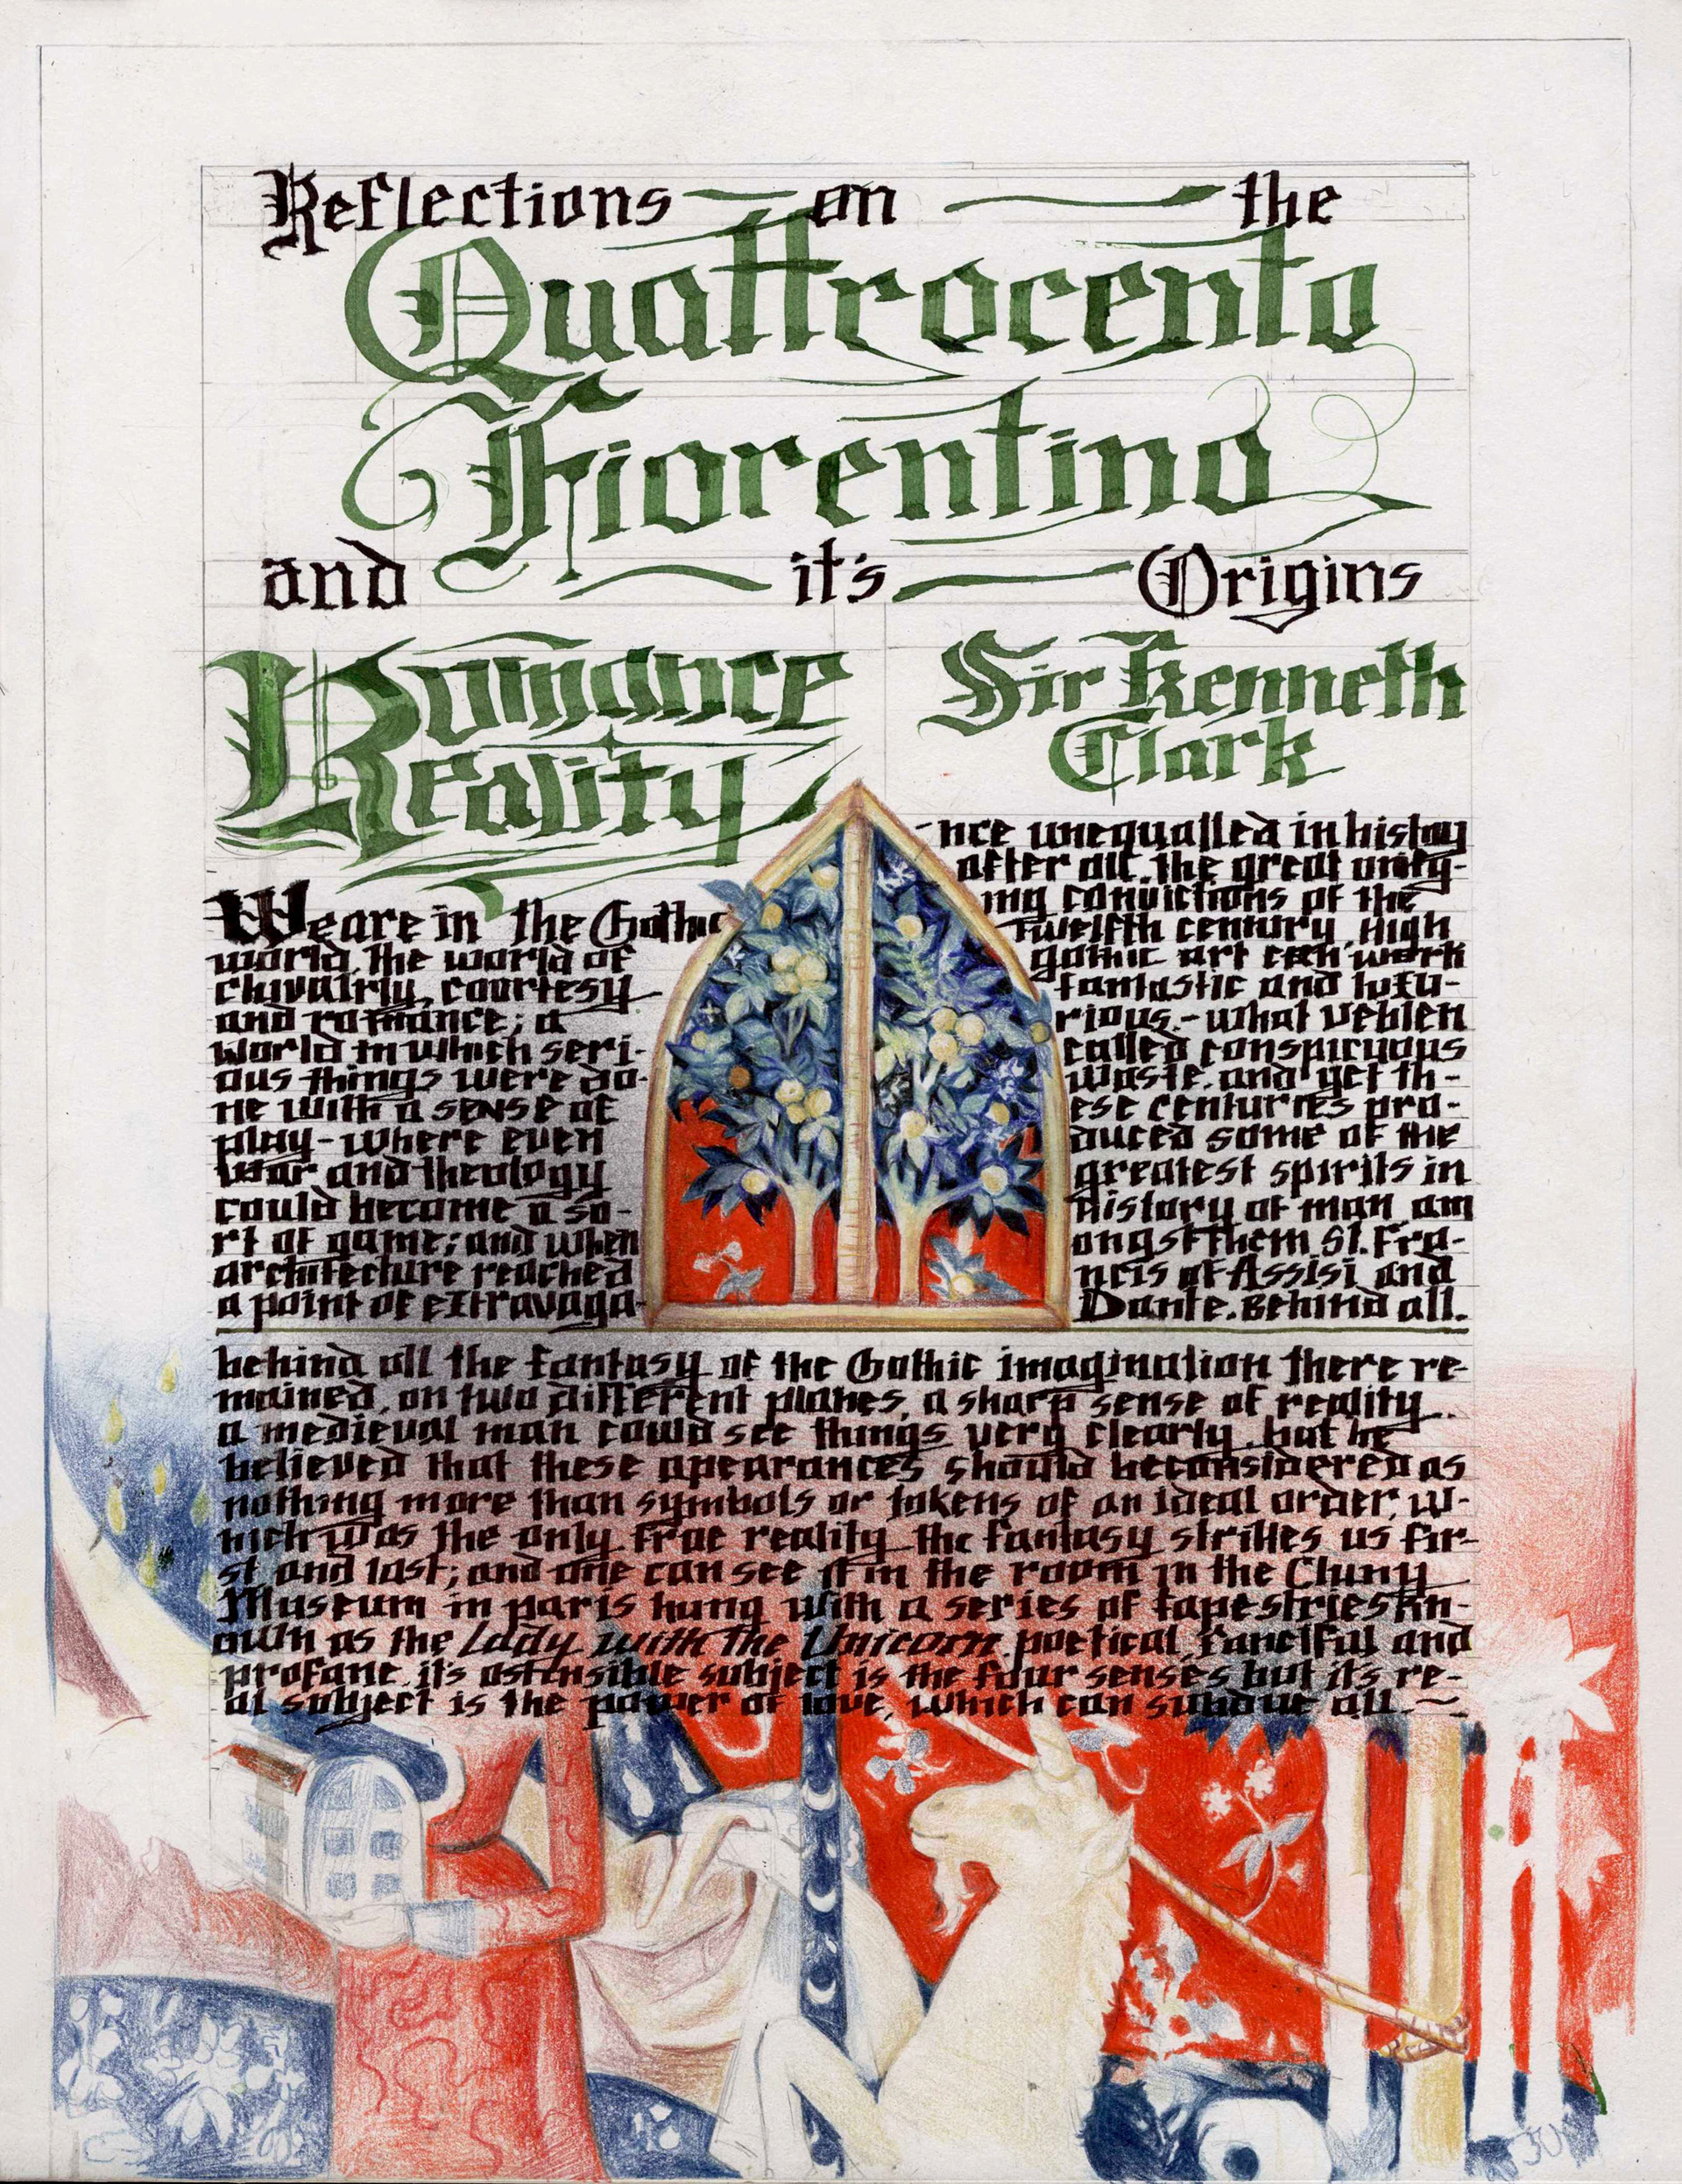 Reflections on the
Quattrocento
Fiorentino
and it's Origins
Romance
Reality
Sir Kenneth
Clark
We are in the Gothic
world, the world of
chivalrly, courtesy
and romance; a
world in which seri-
ous things were do-
ne with a sense of
play - where even
war and theology
could become a so-
rt of game; and when
architecture reached
a point of extravaga-
nce unequalled in history
after all, the great unify-
ing convictions of the
twelfth century, High
gothic art can work
fantastic and luxu-
rious - what Veblen
called conspicuous
waste. and yet th-
ese centuries pro-
duced some of the
greatest spirits in
history of man, am
ongst them St. Fra-
ncis of Assisi and
Dante. Behind all.
behind all the fantasy of the Gothic imagination there re-
mained, on two different planes, a sharp sense of reality.
a medieval man could see things very clearly, but he
believed that these apearances should be considered as
nothing more than symbols or tokens of an ideal order, w-
hich was the only true reality. the fantasy strikes us fir-
st and last; and one can see it in the room in the Cluny
Museum in paris hung with a series of tapestries kn-
own as the Lady with the Unicorn. poetical, fanciful and
profane. it's ostensible subject is the four senses but its re-
al subject is the power of love, which can subdue all.